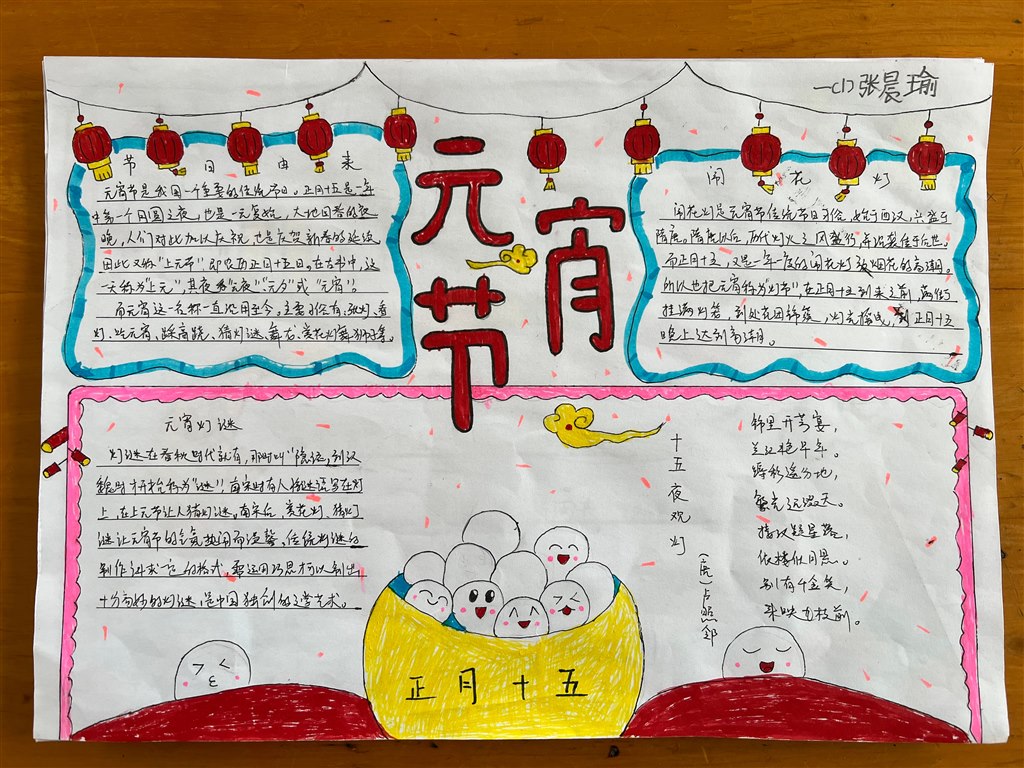 一(1) 张晨瑜
元宵节
节日由来
元宵节是我国一个重要的传统节日。正月十五是一年
中第一个月圆之夜,也是一元复始,大地回春的夜
晚,人们对此加以庆祝,也是庆贺新春的延续
因此又称"上元节"即农历正月十五日。在古书中,这
一天称为"上元",其夜称"元夜""元夕"或"元宵"。
而元宵这一名称一直沿用至今。主要习俗有,张灯、看
灯、吃元宵、踩高跷、猜灯谜、舞龙、赏花灯舞狮子等。
闹花灯
闹花灯是元宵节传统节日习俗,始于西汉,兴盛于
隋唐。隋唐以后,历代灯火之风盛行,并沿袭传于后世。
而正月十五,又是一年一度的闹花灯放烟花的高潮。
所以也把元宵称为"灯节",在正月十五到来之前,满街
挂满灯笼,到处花团锦簇,灯光摇曳,到正月十五
晚上达到高潮。
元宵灯谜
灯谜在春秋时代就有,那时叫"隐语",到汉
魏时才开始称为"谜",南宋时有人将谜语写在灯
上,在上元节让人猜灯谜。南宋后,赏花灯、猜灯
谜让元宵节的气氛热闹而温馨。传统灯谜的
制作讲求它的格式,要运用巧思才可以制出
十分奇妙的灯谜,是中国独创的文学艺术。
十五夜观灯
(唐)卢照邻
锦里开芳宴,
兰缸艳早年。
缛彩遥分地,
繁光远缀天。
接汉疑星落,
依楼似月悬。
别有千金笑,
来映九枝前。
正月十五